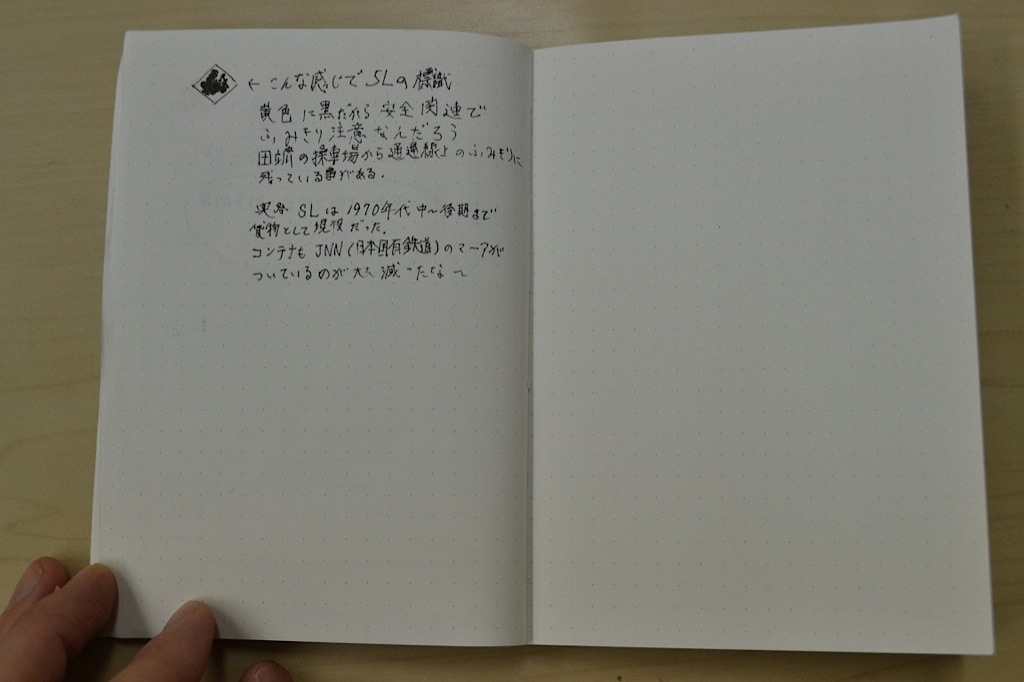 ←こんな感じでSLの標識
黄色に黒だから安全関連で
ふみきり注意なんだろう
田端の操車場から通
残っている事がある。
実際SLは1970年代中〜後期まで
貨物として現役だった。
コンテナもJNN(日本国有鉄道)のマークが
ついているのが 減ったなー